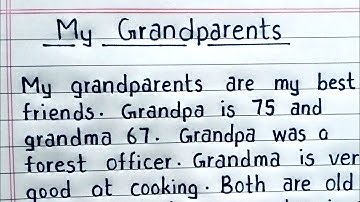 My Grandparents
My grandparents are my best
friends. Grandpa is 75 and
grandma 67. Grandpa was a
forest officer. Grandma is ver
good at cooking. Both are old